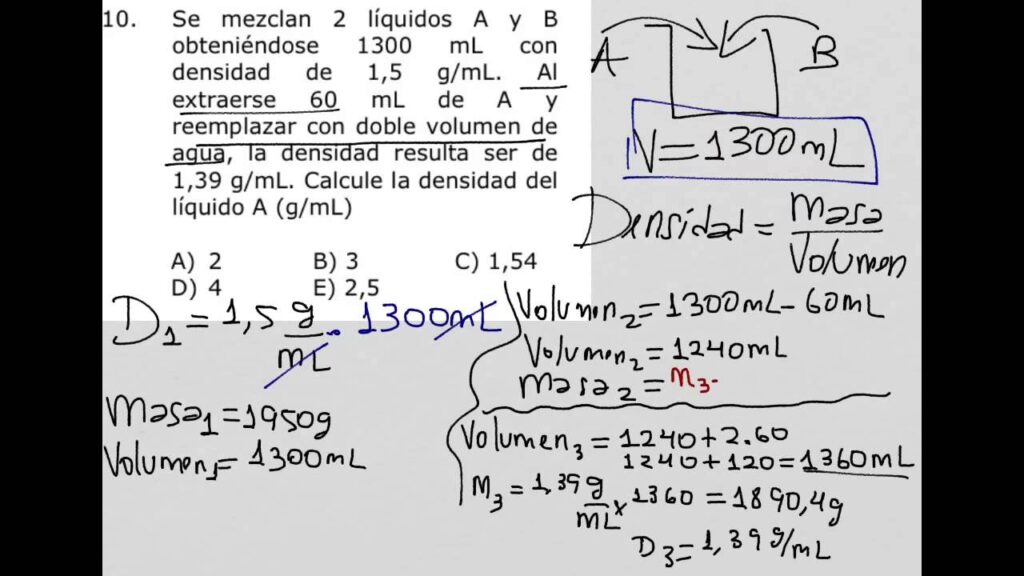 10. Se mezclan 2 líquidos A y B
obteniéndose 1300 mL con
densidad de 1,5 g/mL. Al
extraerse 60 mL de A y
reemplazar con doble volumen de
agua, la densidad resulta ser de
1,39 g/mL. Calcule la densidad del
líquido A (g/mL)
A) 2 B) 3 C) 1,54
D) 4 E) 2,5
A B
V=1300mL
Densidad = masa / Volumen
D1 = 1,5 g/mL . 1300mL
Masa1 = 1950g
Volumen1 = 1300mL
Volumen2 = 1300mL - 60mL
Volumen2 = 1240mL
masa2 = M3-
Volumen3 = 1240+2.60
1240+120 = 1360mL
M3 = 1,39 g/mL x 1360 = 1890,4g
D3 = 1,39 g/mL